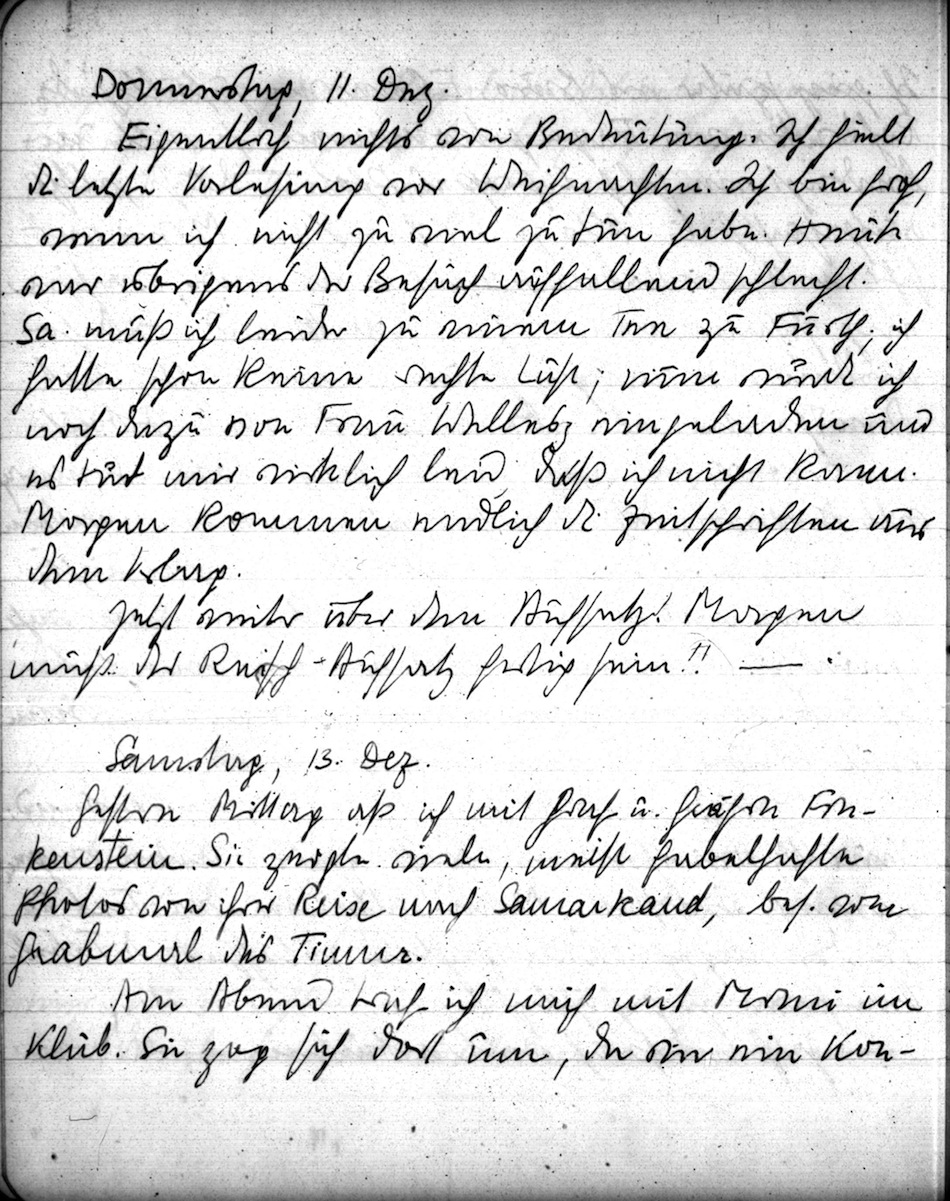 Donnerstag, 11. Dez.
Eigentlich nichts von Bedeutung. Ich hielt
die letzte Vorlesung vor Weihnachten. Ich bin froh,
wenn ich nicht zu viel zu tun habe. Heute
war übrigens der Besuch auffallend schlecht.
Sa. muß ich leider zu einem Tee zu Fürth, ich
hatte schon keine rechte Lust; nun wurde ich
noch dazu von Frau Wellesz eingeladen und
es tut mir wirklich leid, daß ich nicht kann.
Morgen kommen endlich die Zeitschriften aus
dem Verlag.
Jetzt weiter über den Aufsatz! Morgen
muß der Aufsatz fertig sein!! —
Samstag, 13. Dez.
Gestern Mittag aß ich mit Graf u. Gräfin Fin-
kenstein. Sie zeigten viele, meist fabelhafte
Photos von ihrer Reise nach Samarkand, bes. vom
Grabmal des Timur.
Am Abend traf ich mich mit im
Klub. Sie zog sich dort um, da wir ein Kon-